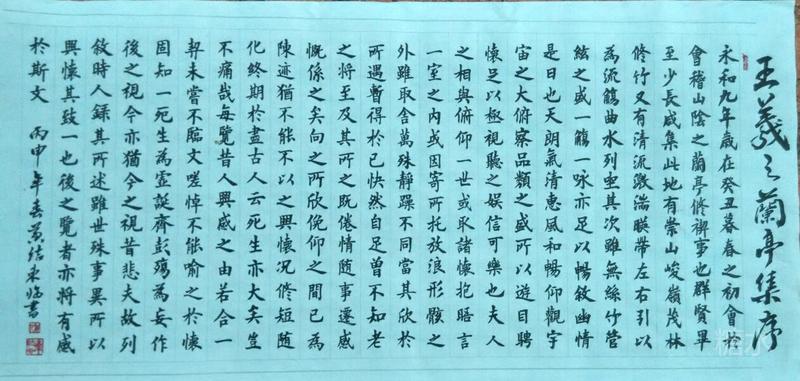 王羲之蘭亭集序
永和九年歲在癸丑暮春之初會於
會稽山陰之蘭亭修禊事也群賢畢
至少長咸集此地有崇山峻嶺茂林
修竹又有清流激湍暎帶左右引以
為流觴曲水列坐其次雖無絲竹管
絃之盛一觴一咏亦足以暢敘幽情
是日也天朗氣清惠風和暢仰觀宇
宙之大俯察品類之盛所以遊目騁
懷足以極視聽之娛信可樂也夫人
之相與俯仰一世或取諸懷抱晤言
一室之內或因寄所托放浪形骸之
外雖取舍萬殊靜躁不同當其欣於
所遇暫得於己快然自足曾不知老
之將至及其所之既倦情隨事遷感
慨係之矣向之所欣俛仰之間已為
陳迹猶不能不以之興懷況修短隨
化終期於盡古人云死生亦大矣豈
不痛哉每覽昔人興感之由若合一
契未嘗不臨文嗟悼不能喻之於懷
固知一死生為虛誕齊彭殤為妄作
後之視今亦猶今之視昔悲夫故列
敘時人錄其所述雖世殊事異所以
興懷其致一也後之覽者亦將有感
於斯文 丙申年春黃結來臨書
糖水